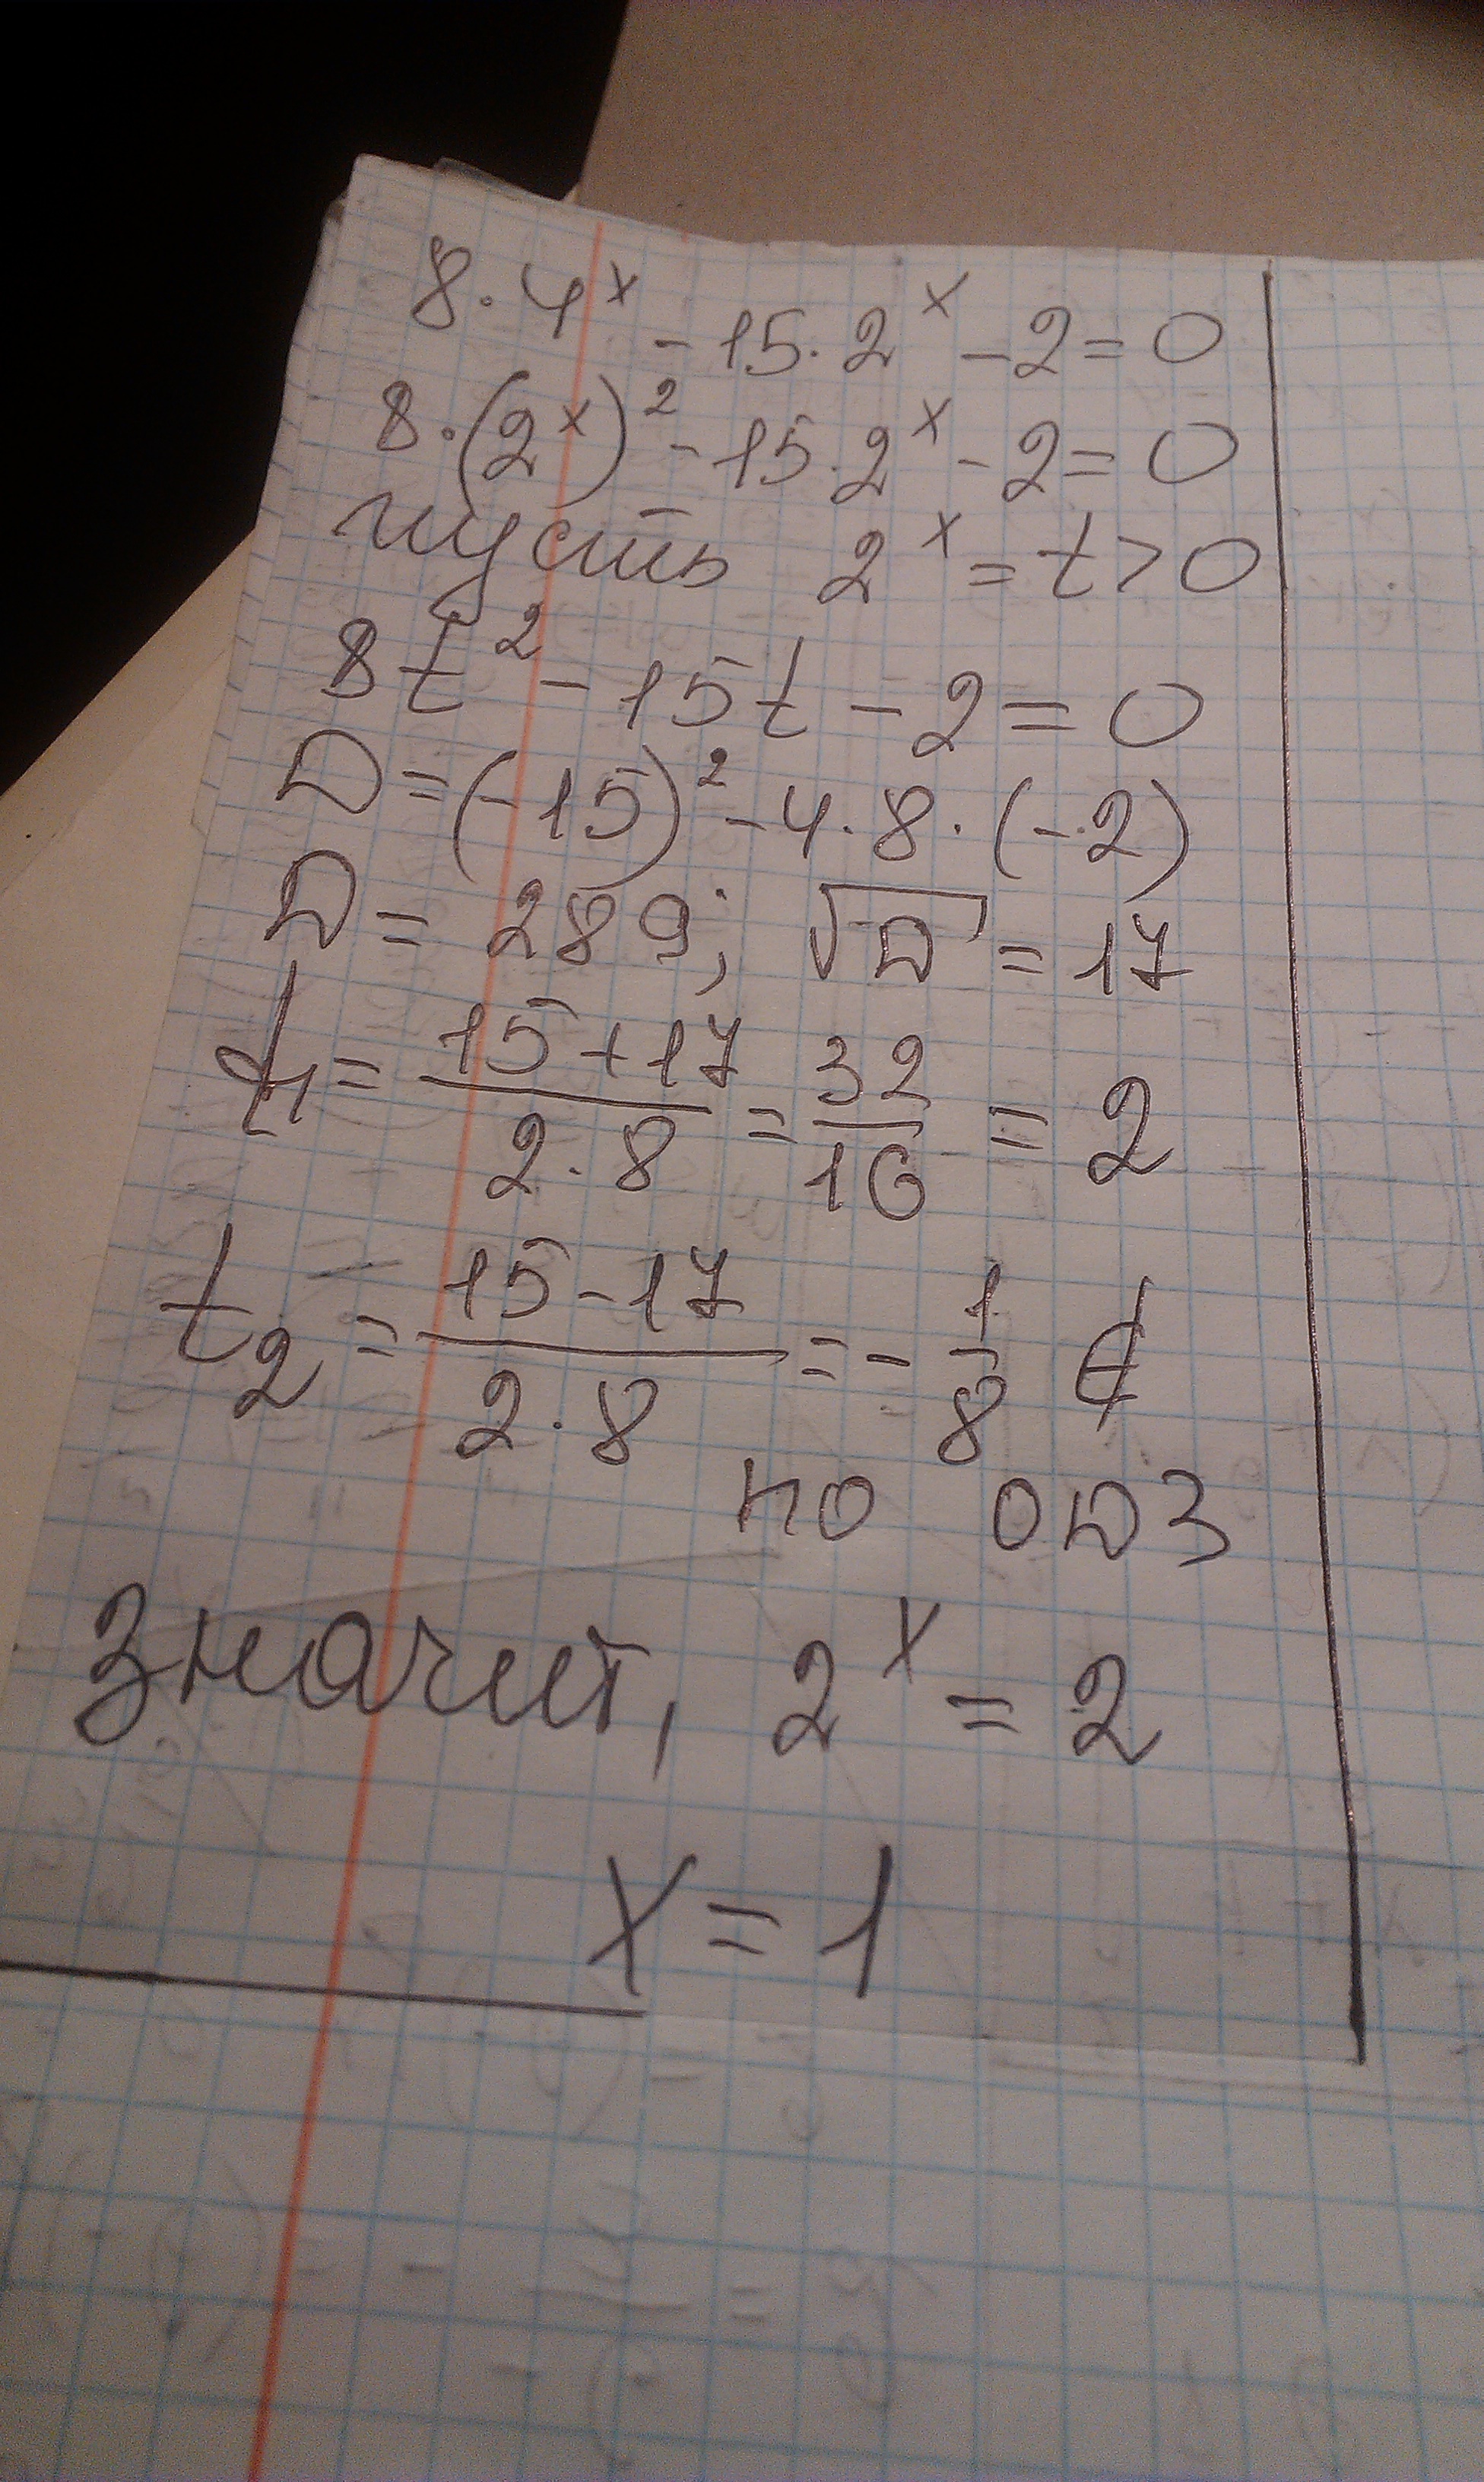 8·4ˣ - 15·2ˣ - 2 = 0
8·(2ˣ)² - 15·2ˣ - 2 = 0
пусть 2ˣ = t > 0
8t² - 15t - 2 = 0
D = (-15)² - 4·8·(-2)
D = 289; √D = 17
t₁ = (15+17)/(2·8) = 32/16 = 2
t₂ = (15-17)/(2·8) = -1/8 ∉
по ОДЗ
Значит, 2ˣ = 2
x = 1